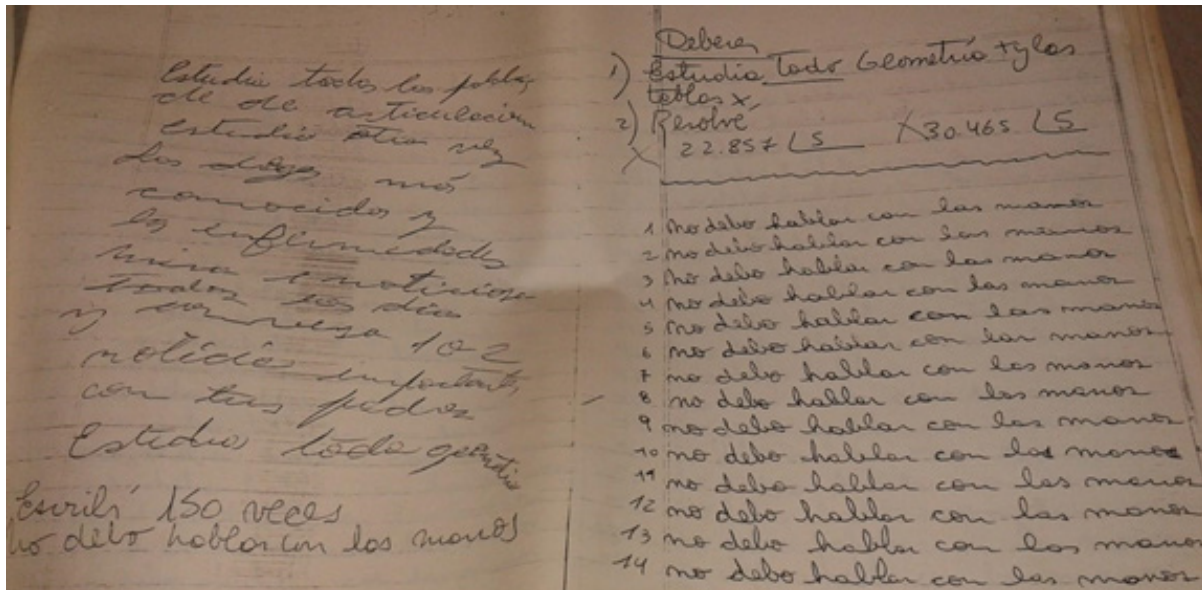 Estudia todos los
de de articulación
estudia otra vez
los más
conocidos y
las enfermedades
mira
todos los días
y conversa 1 o 2
noticias importantes
con tus
Estudia toda geometria
Escribí 150 veces
no debo hablar con las manos
Deberes
1) Estudia Todo Geometría + y las
tablas x,
2) Resolvé
22.857 5 X 30.465 5
1 no debo hablar con las manos
2 no debo hablar con las manos
3 no debo hablar con las manos
4 no debo hablar con las manos
5 no debo hablar con las manos
6 no debo hablar con las manos
7 no debo hablar con las manos
8 no debo hablar con las manos
9 no debo hablar con las manos
10 no debo hablar con las manos
11 no debo hablar con las manos
12 no debo hablar con las manos
13 no debo hablar con las manos
14 no debo hablar con las manos